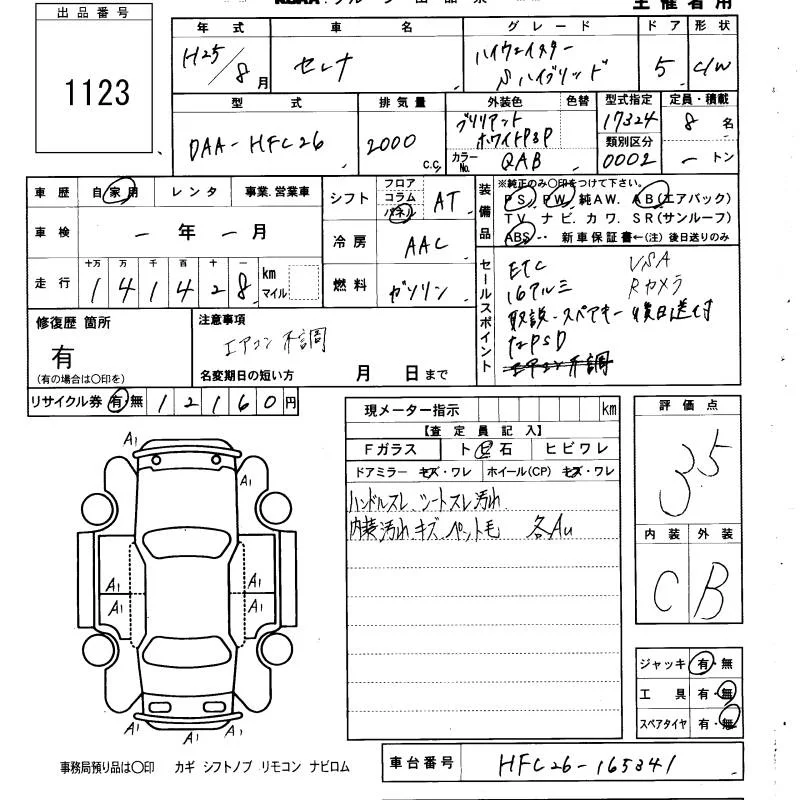 出品番号
1123
主催者用
年式 車名 グレード ドア 形状
H25/8月 セレナ ハイウェイスター Sハイブリッド 5 C/W
型式 排気量 外装色 色替 型式指定 定員・積載
DAA-HFC26 2000c.c. ブリリアントホワイトPらP 17324 8名
類別区分
カラーNo. QAB 0002 ートン
車歴 自家用 レンタ 事業.営業車
車検 ー年ー月
走行 十万 万 千 百 十 一 km マイル
141428
シフト フロア コラム パネル AT
冷房 AAC
燃料 ガソリン
装備品 ※純正のみ○印をつけて下さい。
PS. PW. 純AW. AB(エアバック)
TV. ナビ. カワ. SR(サンルーフ)
ABS・・ 新車保証書←(注)後日送りのみ
セールスポイント
ETC VSA
16アルミ Rカメラ
取説・スペアキー 後日送付
エアコン不調
修復歴 箇所
有
(有の場合は○印を)
注意事項
エアコン 不調
名変期日の短い方 月 日まで
リサイクル券 有 無 12160円
現メーター指示 km
【査定員記入】
Fガラス ト 石 ヒビワレ
ドアミラー キズ・ワレ ホイール(CP) キズ・ワレ
ハンドルスレ、シートスレ汚れ
内装汚れ キズ、ペット毛 各AU
評価点
3.5
内装 外装
C B
ジャッキ 有・無
工具 有・無
スペアタイヤ 有・無
A1
A1
A1 A1
A1 A1
A1
A1 A1
事務局預り品は○印 カギ シフトノブ リモコン ナビロム
車台番号 HFC26-165341